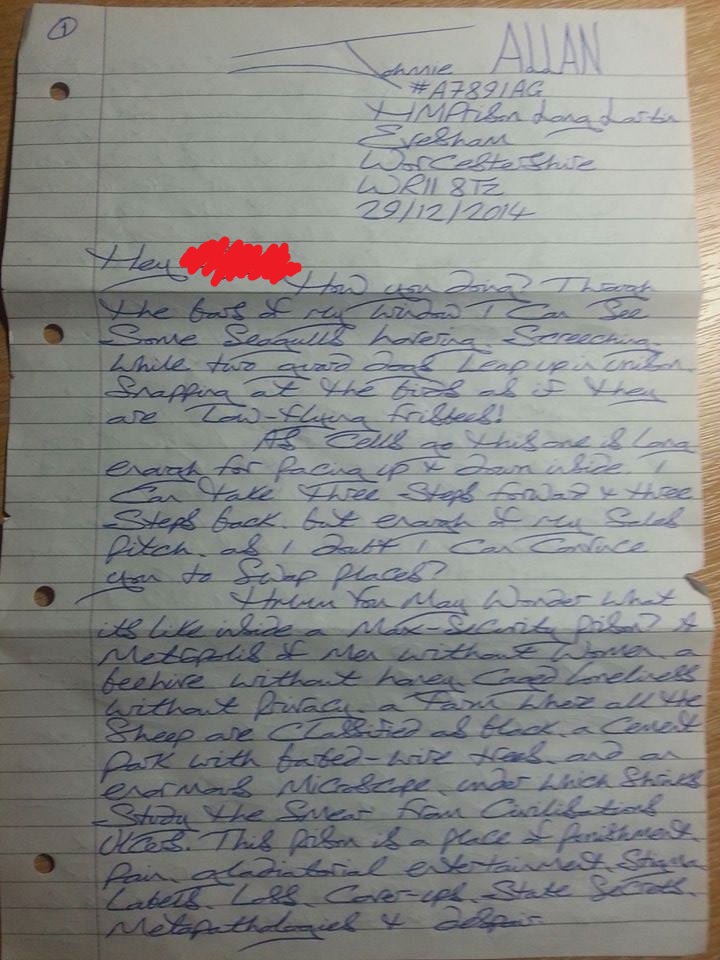 ①
Johnnie ALLAN
#A7891AG
HMPrison Long Lartin
Evesham
Worcestershire
WR11 8TZ
29/12/2014
Hey
How you doing? Through
the bars of my window I can see
some seagulls hovering. Screeching.
while two guard dogs leap up in unison.
Snapping at the birds as if they
are low-flying frisbees!
As cells go this one is long
enough for pacing up & down inside. I
can take three steps forward & three
steps back. but enough of my sales
pitch. as I doubt I can convince
you to swap places?
You may wonder what
its like inside a Max-Security prison? A
Metropolis of men without women. a
beehive without honey. Caged loneliness
without privacy. a farm where all the
sheep are classified as black. a cement
park with barbed-wire trees. and an
enormous microscope. under which shrinks
study the smear from civilisations
ulcers. This prison is a place of punishment.
pain. gladiatorial entertainment. Stigma.
Labels. Loss. Cover-ups. State secrets.
Metapathologies & despair